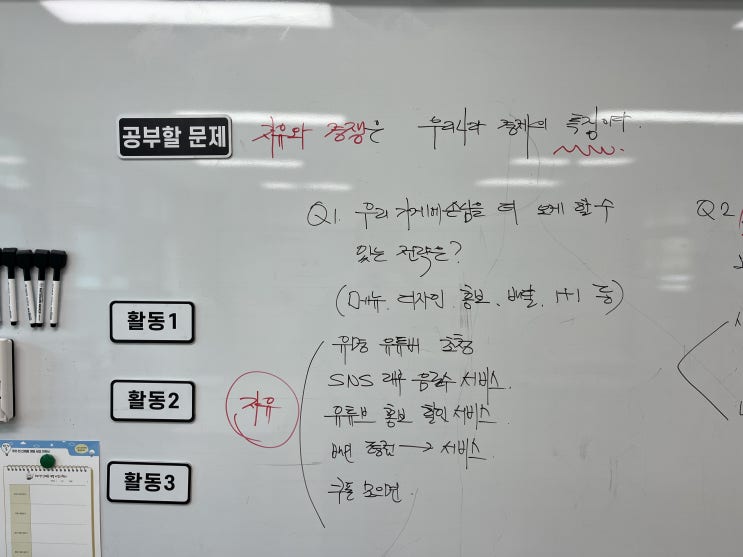 공부할 문제 자유와 경쟁은 우리나라 경제의 특징이다.
Q1. 우리 가게에 손님을 더 오게 할 수
있는 전략은?
(메뉴, 디자인, 홍보, 배달, 1+1 등)
활동1
유명 유튜버 초청
SNS 리뷰 음료수 서비스.
활동2
자유
유튜브 홍보 할인 서비스.
서비스.
활동3
쿠폰 모으면.
Q2